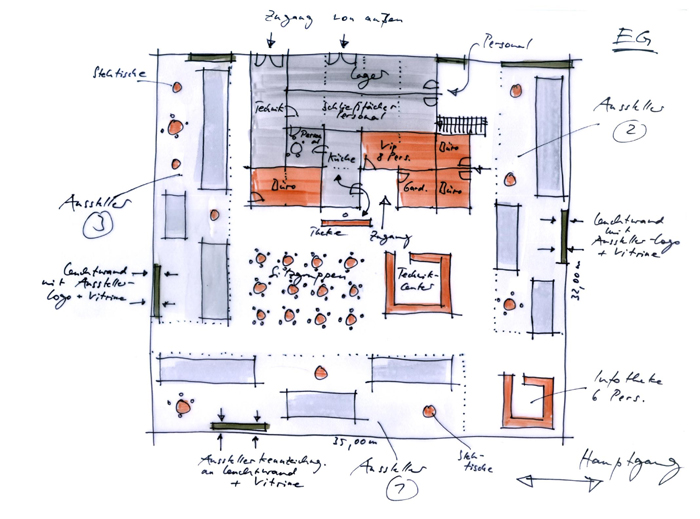 Zugang von außen
EG
Personal
Stehtische
Lager
Technik
Schließfächer
Personal
Aussteller
2
Küche
Vip
8 Pers.
Büro
Aussteller
3
Büro
Gard.
Büro
Theke
Zugang
Leuchtwand
mit Aussteller-Logo
+ Vitrine
Leuchtwand
mit Aussteller-
Logo + Vitrine
Sitzgruppen
Technik-
Center
32,00m
Infotheke
6 Pers.
35,00m
Ausstellerkennzeichng.
an Leuchtwand
+ Vitrine
Aussteller
1
Steh-
tische
Hauptgang